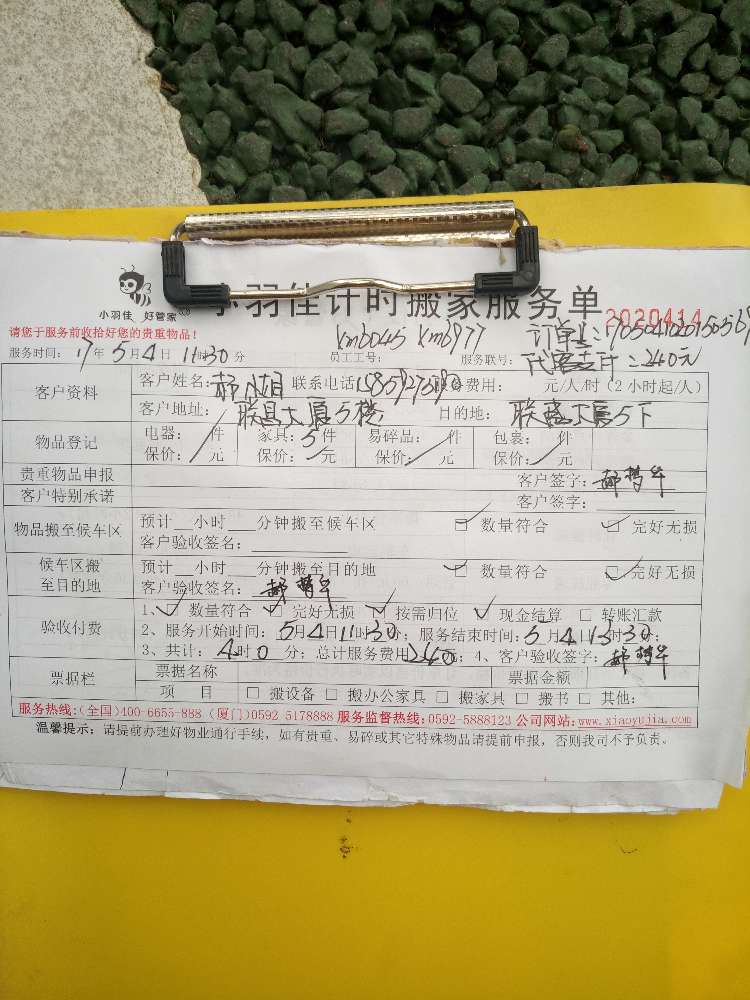 小羽佳 好管家
小羽佳计时搬家服务单
2020414
请您于服务前收拾好您的贵重物品！
km3045 km3977 订单号:
服务时间：17年5月4日11时30分 员工工号： 服务联号： 代客支付：240元
客户资料
客户姓名：郝小姐 联系电话 费用： 元/人/时（2小时起/人）
客户地址：联昌大厦5楼 目的地：联昌大厦5下
物品登记
电器： 件 家具：5件 易碎品： 件 包裹： 件
保价： 元 保价： 元 保价： 元 保价： 元
贵重物品申报 客户签字：
客户特别承诺 客户签字：
物品搬至候车区
预计__小时___分钟搬至候车区 □ 数量符合 □ 完好无损
客户验收签名：
候车区搬至目的地
预计__小时___分钟搬至目的地 □ 数量符合 □ 完好无损
客户验收签名：
验收付费
1、☑ 数量符合 ☑ 完好无损 ☑ 按需归位 ☑ 现金结算 □ 转账汇款
2、服务开始时间：5月4日11时30分；服务结束时间：5月4日13时30分；
3、共计：4时0分；总计服务费用240元；4、客户验收签字：
票据栏
票据名称 票据金额
项 目 □ 搬设备 □ 搬办公家具 □ 搬家具 □ 搬书 □ 其他：
服务热线:(全国)400-6655-888 (厦门)0592 5178888 服务监督热线:0592-5888123 公司网站:www.xiaoyujia.com
温馨提示：请提前办理好物业通行手续，如有贵重、易碎或其它特殊物品请提前申报，否则我司不予负责。